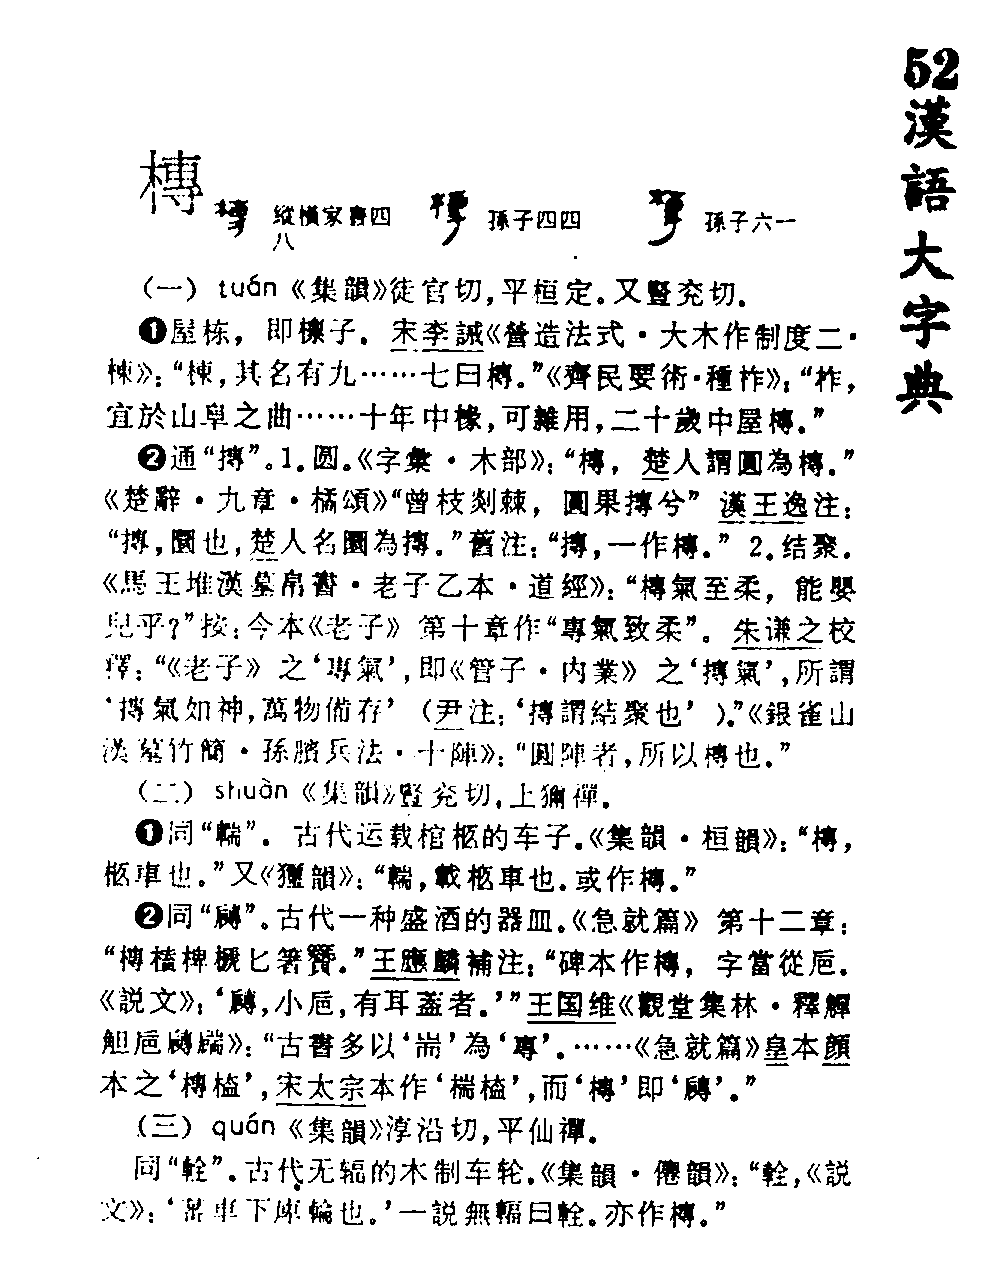 52
漢語大字典
槫
縱橫家書四八
孫子四四
孫子六一
(一) tuán《集韻》徒官切,平桓定。又豎兖切.
❶屋栋, 即檩子. 宋李誡《營造法式·大木作制度二·
棟》:“棟,其名有九……七曰槫。”《齊民要術·種柞》:“柞,
宜於山阜之曲……十年中椽,可雜用,二十歲中屋槫。”
❷通“摶”。1.圆。《字彙·木部》:“槫, 楚人謂圓為槫。”
《楚辭·九章·橘頌》“曾枝剡棘, 圓果摶兮” 漢王逸注:
“摶,圜也,楚人名圜為摶。”舊注:“摶,一作槫.” 2.结聚.
《馬王堆漢墓帛書·老子乙本·道經》:“槫氣至柔, 能嬰
兒乎?”按:今本《老子》第十章作“專氣致柔”. 朱谦之校
釋:“《老子》之‘專氣’,即《管子·内業》之‘摶氣’,所謂
‘摶氣如神,萬物備存’ (尹注:‘摶謂結聚也’ )。”《銀雀山
漢墓竹簡·孫臏兵法·十陣》:“圓陣者,所以槫也.”
(二) shuàn《集韻》豎兖切,上獮禪.
❶同“輲”. 古代运载棺柩的车子.《集韻·桓韻》:“槫,
柩車也.”又《獮韻》:“輲,載柩車也.或作槫.”
❷同“䏝”。古代一种盛酒的器皿.《急就篇》第十二章:
“槫榼椑榹匕箸籫.”王應麟補注:“碑本作槫, 字當從巵.
《説文》:‘䏝,小巵,有耳蓋者.’”王国维《觀堂集林·釋觶
觛巵䏝𧣪》:“古書多以‘耑’為‘專’.……《急就篇》皇本顔
本之‘槫榼’,宋太宗本作‘椯榼’,而‘槫’即‘䏝’.”
(三) quán《集韻》淳沿切,平仙禪.
同“輇”.古代无辐的木制车轮.《集韻·僊韻》:“輇,《説
文》:‘蕃車下庳輪也.’一説無輻曰輇。亦作槫.”